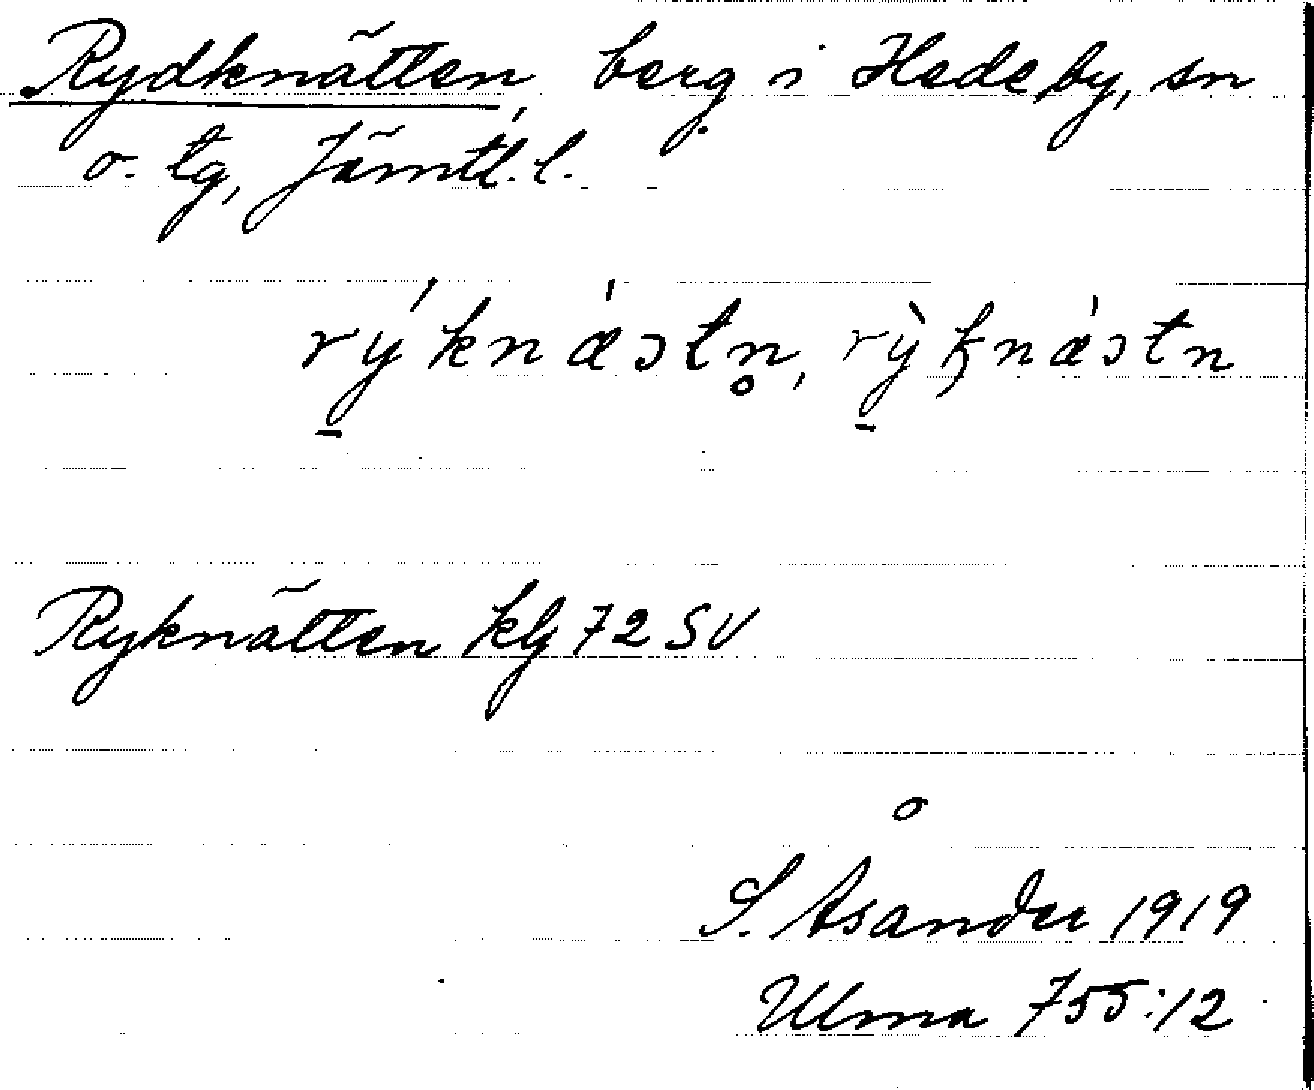 Rydknätten, berg i Hedeby, sn
o. tg, Jämtl. l.
rýknǽɔtn̥, rỳknǽɔtn
Ryknätten klj 72 SV
S. Åsander 1919
Ulma 755:12